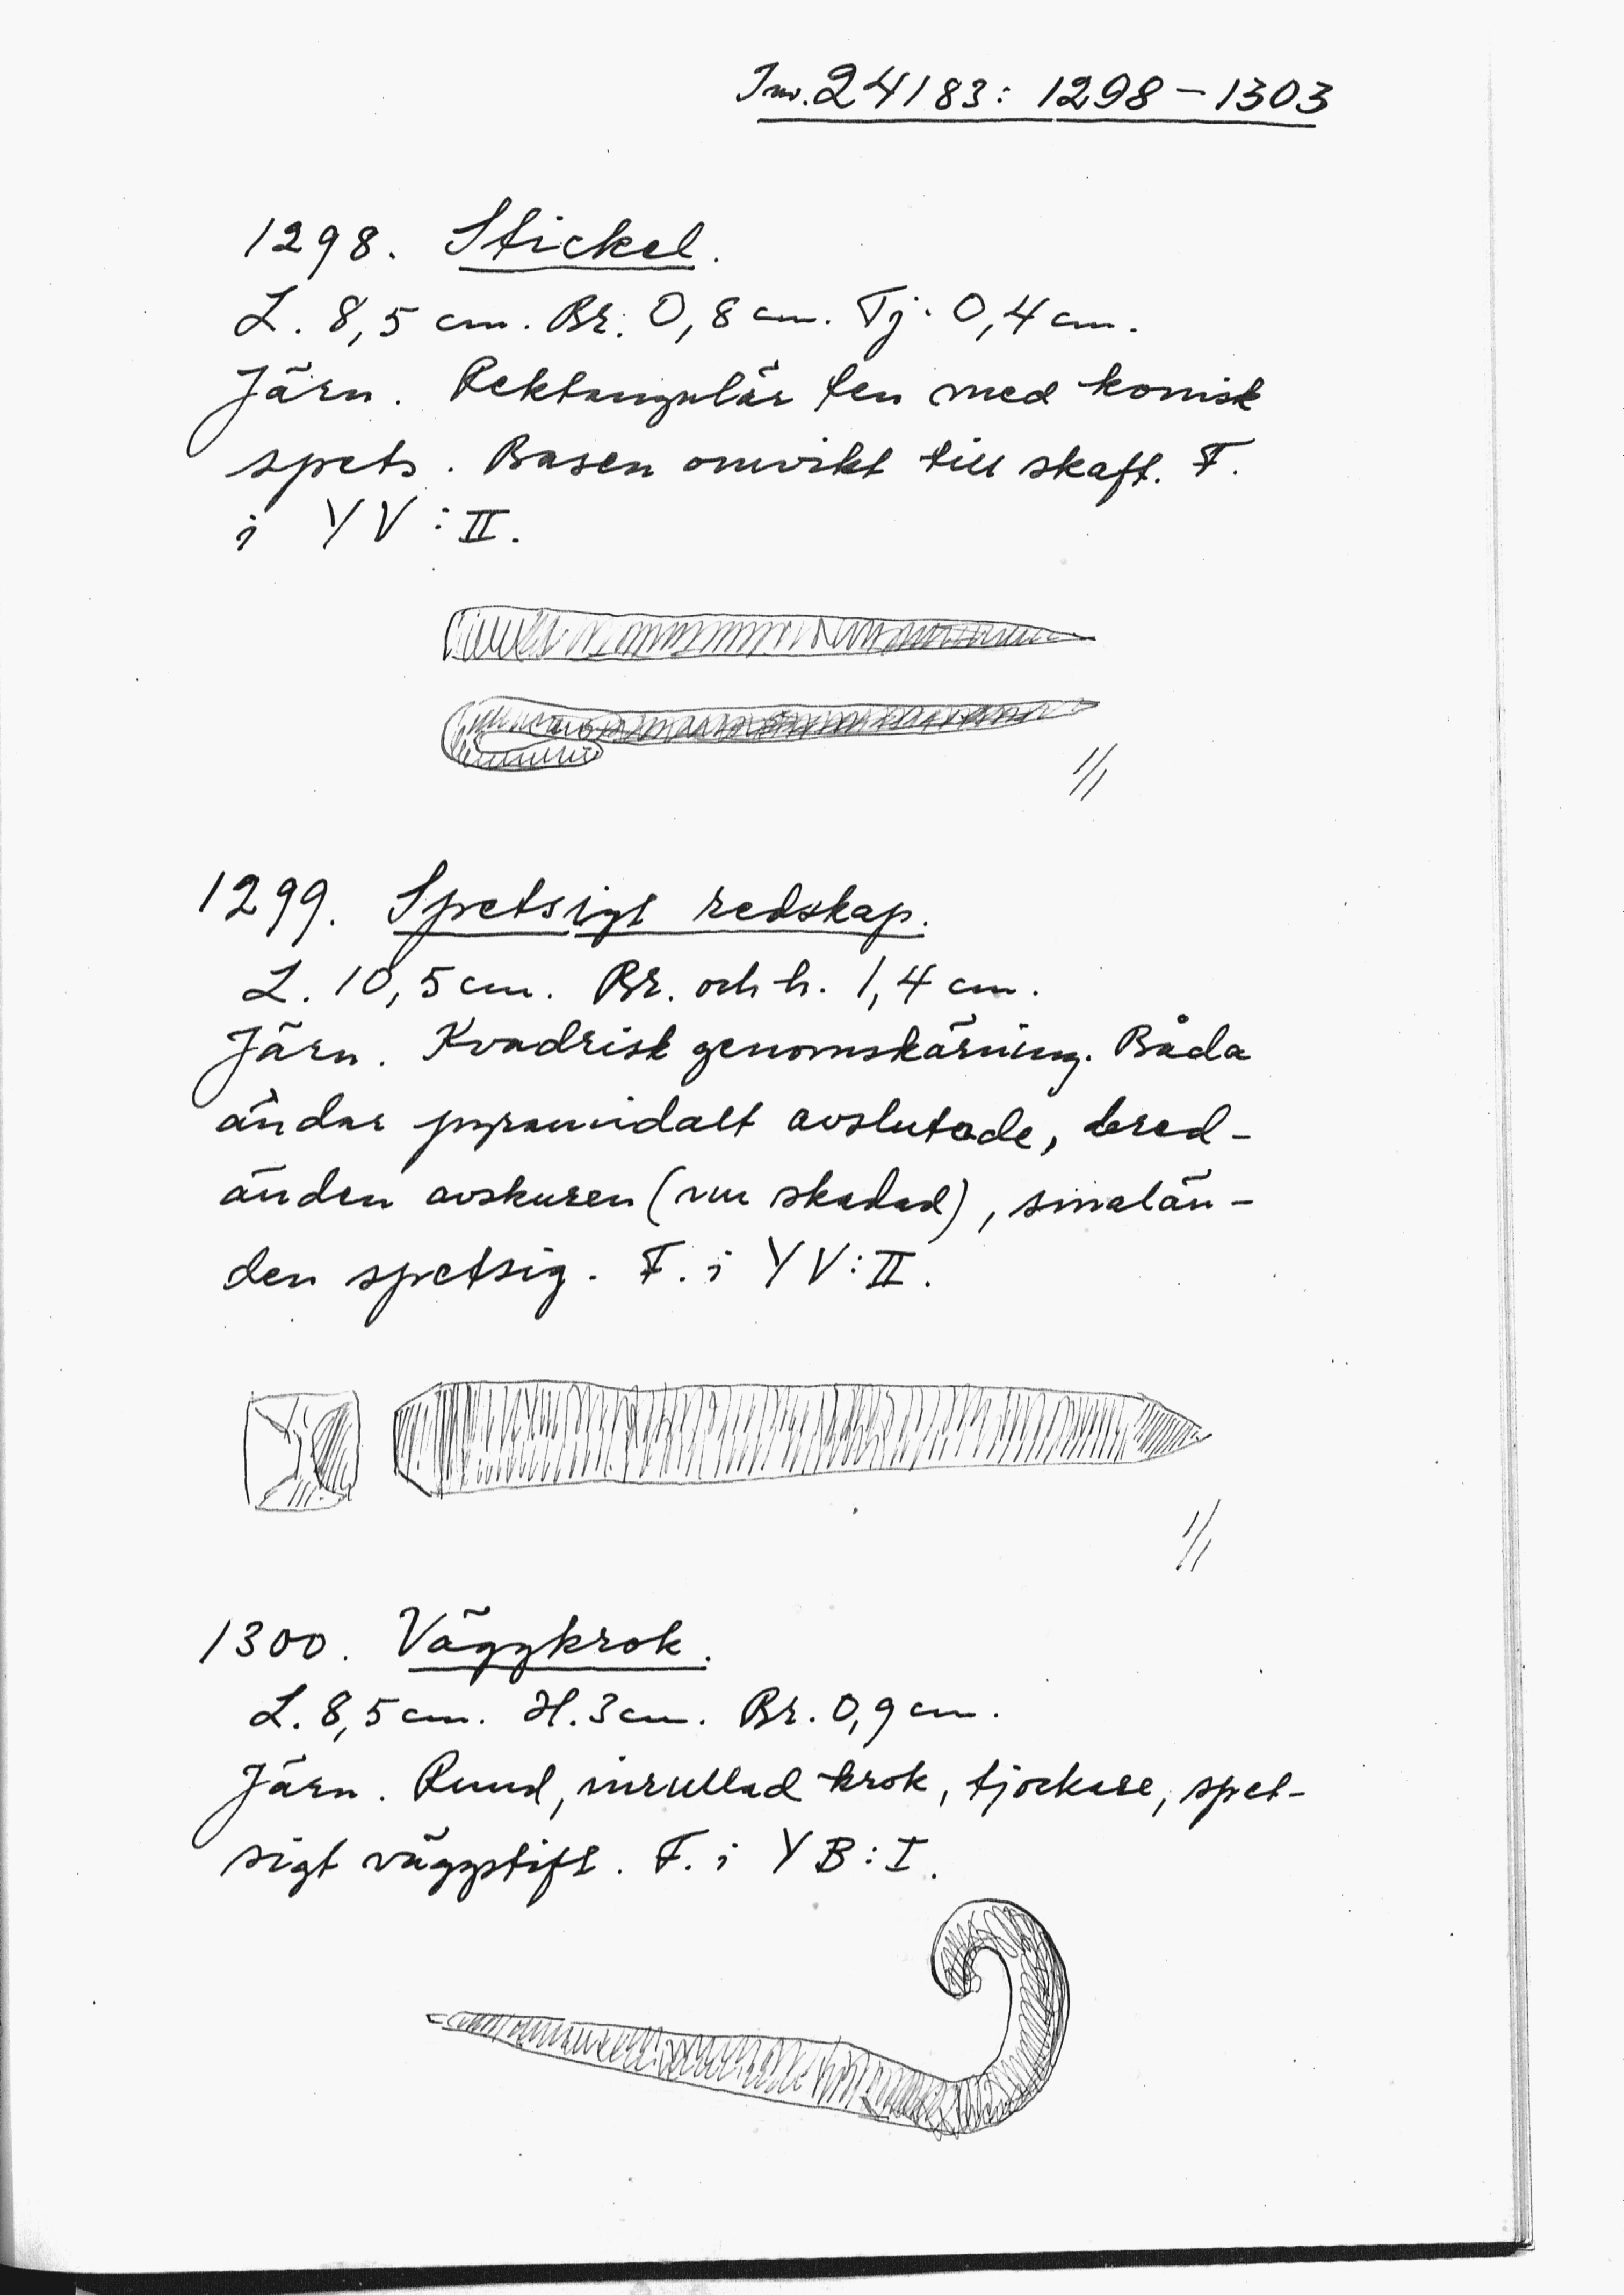 Inv. 24183: 1298-1303
1298. Stickel.
L. 8,5 cm. Br. 0,8 cm. Tj. 0,4 cm.
Järn. Rektangulär ten med konisk
spets. Basen omvikt till skaft. F.
i YV:II.
1/1
1299. Spetsigt redskap.
L. 10,5 cm. Br. och h. 1,4 cm.
Järn. Kvadrisk genomskärning. Båda
ändar pyramidalt avslutade, bred-
änden avskuren (nu skadad), smalän-
den spetsig. F. i YV:II.
1/1
1300. Väggkrok.
L. 8,5 cm. H. 3 cm. Br. 0,9 cm.
Järn. Rund, inrullad krok, tjockare, spet-
sigt väggstift. F. i YB:I.